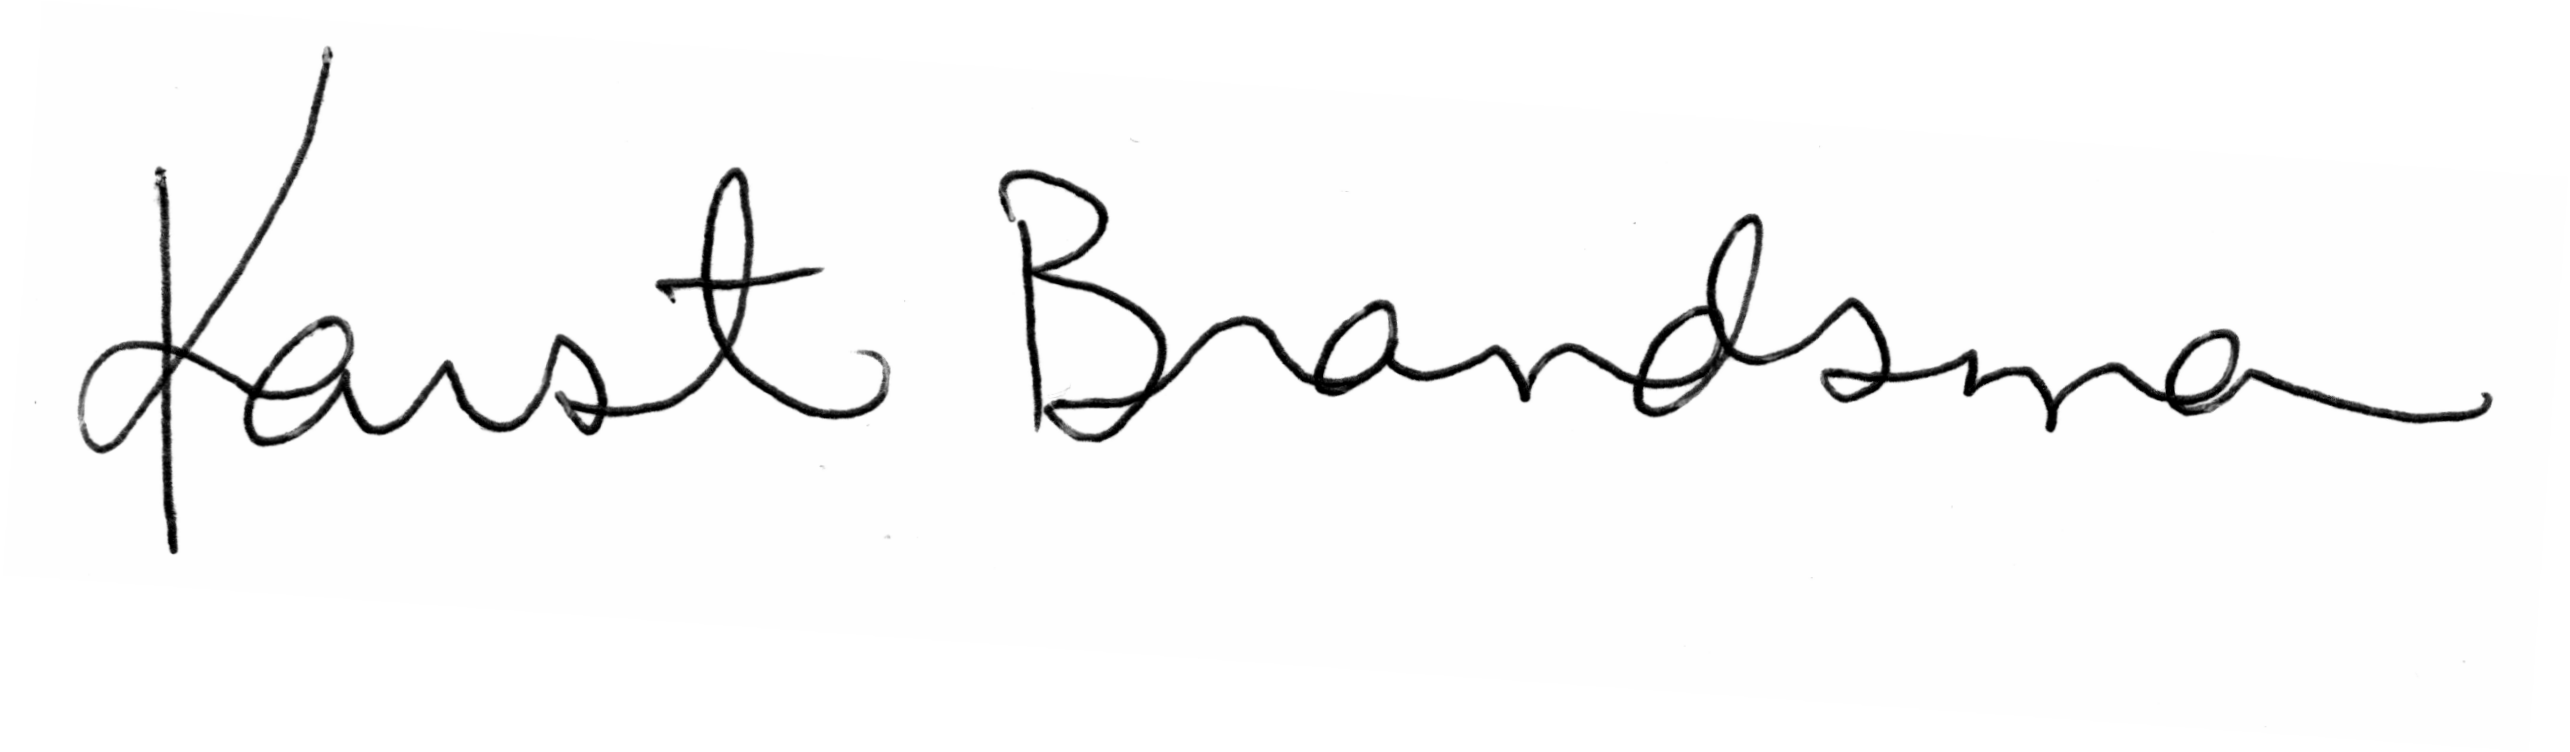 Karst Brandsma